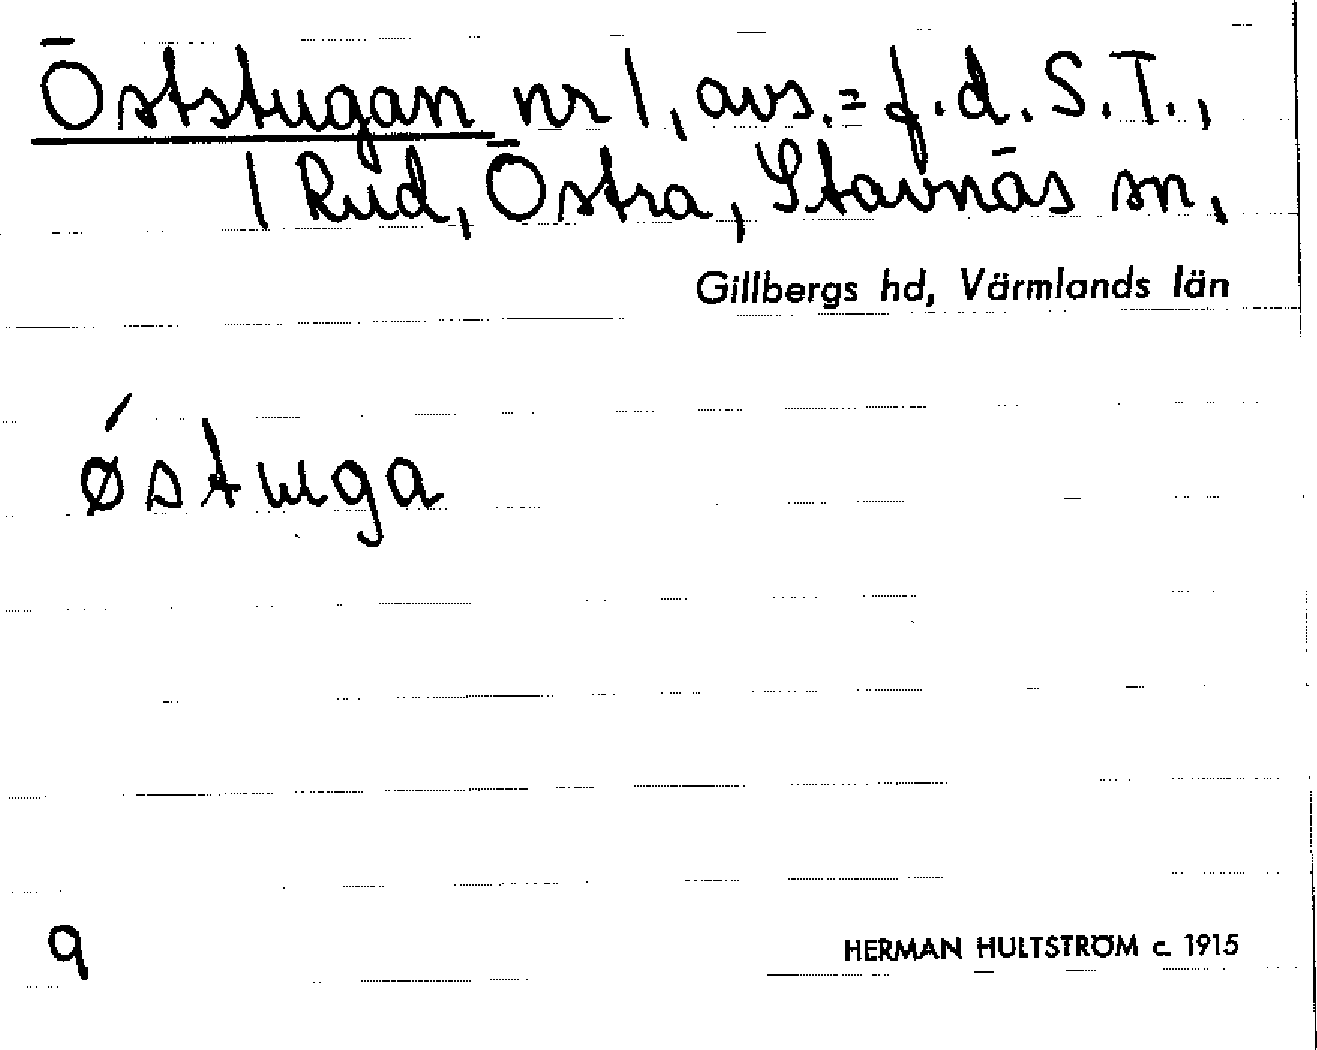 Öststugan nr 1, avs. = f.d. S.T.,
1 Rud, Östra, Stavnäs sn,
Gillbergs hd, Värmlands län
ǿstuga
9
HERMAN HULTSTRÖM c. 1915